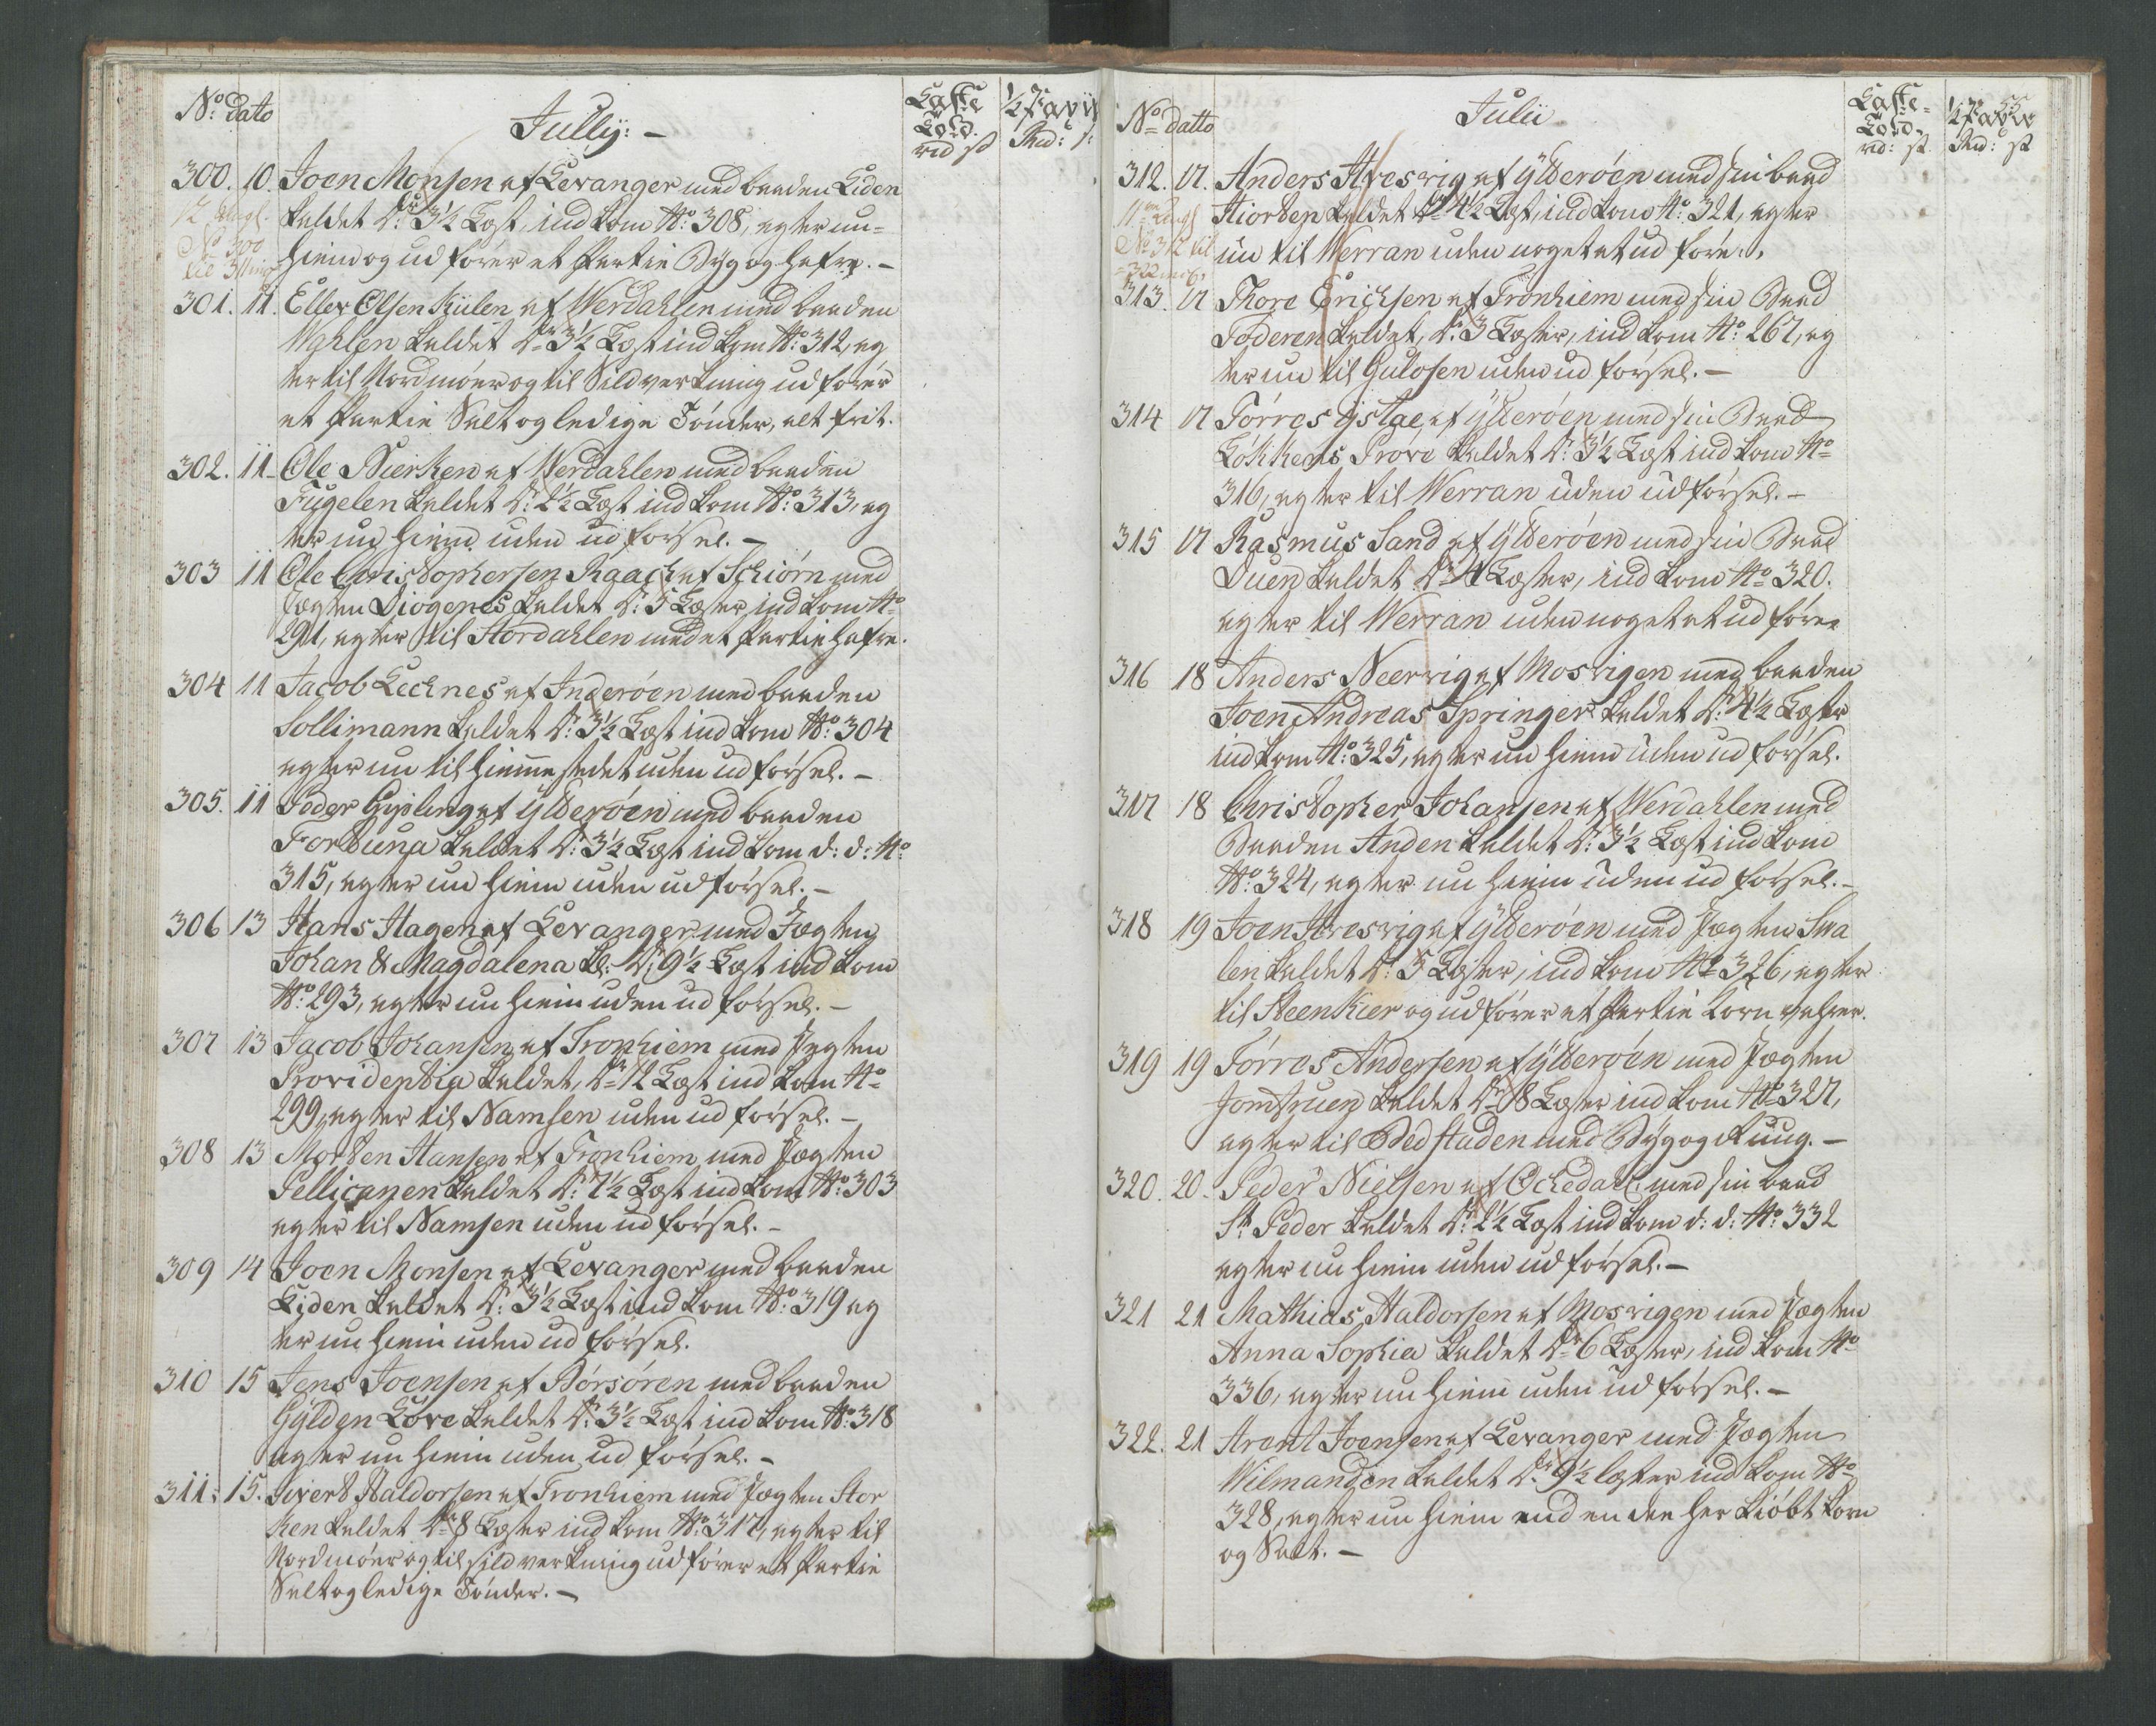 No: dato
Jully: -
Laste
Told.
rd s
Rd: s:
300. 10. Joen Monsen af Levanger med baaden Liden
kaldet dr: 3½ Læst, indkom No: 308, agter nu
hiem og udfører et Partie Byg og hafre. -
12 Augl.
No 300
til 311
301. 11. Eller Olsen Külen af Werdahlen med baaden
Wahlen kaldet dr: 3½ Læst indkom No: 312, ag
ter til Nordmøer og til Sildverkning udfører
et Partie Salt og ledige Tønder, alt frit.
302. 11. Ole Bierken af Werdahlen med baaden
Fugelen kaldet dr: 2½ Læst indkom No: 313, ag
ter nu hiem uden udførsel. -
303 11 Ole Christophersen Raach af Schiørn med
Jagten Diogenes kaldet dr: 5 Læster indkom No
291, agter til Størdahlen med et Partie hafre.
304 11 Jacob Lechnes af Inderøen med baaden
Sollimann kaldet dr: 3½ Læst indkom No: 304
agter nu til hiemmestedet uden udførsel. -
305. 11 Peder Gipling af Ytterøen med baaden
Fortuna kaldet dr: 3½ Læst indkom d: d: No:
315, agter nu hiem uden udførsel. -
306 13 Hans Hagen af Levanger med Jagten
Johan & Magdalena kl: dr: 9½ Læst indkom
No: 293, agter nu hiem uden udførsel. -
307 13 Jacob Johansen af Tronhiem med Jagten
Providentia kaldet, dr: 12 Læst indkom No
299, agter til Namsen uden udførsel. -
308 13 Morten Hansen af Tronhiem med Jagten
Pellicanen kaldet dr: 7½ Læst indkom No: 303
agter til Namsen uden udførsel. -
309 14 Joen Monsen af Levanger med baaden
Liden kaldet dr: 3½ Læst indkom No: 319 ag
ter nu hiem uden udførsel.
310 15 Jens Joensen af Børsøren med baaden
Gylden Løve kaldet dr: 3½ Læst indkom No: 318
agter nu hiem uden udførsel. -
311: 15. Sivert Haldorsen af Tronhiem med Jagten Stor
ken kaldet dr: 8 Læster indkom No: 317, agter til
Nordmøer og til sildverkning udfører et Partie
Salt og ledige Tønder. -
No datto
Julii
Laste-
Told.
rd: s.
Rd: s
312. 17. Anders Hresvig af Ytterøen med sin baad
Hiorten kaldet dr 4½ Læst, indkom No: 321, agter
nu til Werran uden noget at udføre.
11te Augs
No 312 til
322
313. 17 Thore Erichsen af Tronhiem med sin Baad
Foderen kaldet, dr: 3 Læster, indkom No: 267, ag
ter nu til Gulosen uden udførsel. -
314 17 Tørres Ystae af Ytterøen med sin Baad
Løkkens Prøve kaldet dr: 3½ Læst indkom No
316, agter til Werran uden udførsel. -
315 17 Rasmus Sand af Ytterøen med sin Baad
Duen kaldet dr 4 Læster, indkom No 320.
agter til Werran uden noget at udføre
316 18 Anders Neervig af Mosvigen med baaden
Joen Andreas Springer kaldet dr: 4½ Læster
indkom No: 325, agter nu hiem uden udførsel.
317 18 Christopher Johansen af Werdahlen med
Baaden Anden kaldet dr: 3½ Læst indkom
No: 324, agter nu hiem uden udførsel. -
318 19 Joen Hresvig af Ytterøen med Jagten Sva
len kaldet dr: 5 Læster, indkom No 326, agter
til Steenkier og udfører et Partie Korn vahrer.
319 19 Tørres Andersen af Ytterøen med Jagten
Jomfruen kaldet dr 8 Læster indkom No 327,
agter til Bedstaden med Byg og Rüüg. -
320. 20. Peder Nielsen af Ochedal med sin baad
St Peder kaldet dr: 2½ Læst indkom d: d: No: 332
agter nu hiem uden udførsel. -
321 21 Mathias Haldorsen af Mosvigen med Jagten
Anna Sophia kaldet dr 6 Læster, indkom No
336, agter nu hiem uden udførsel. -
322. 21 Arent Joensen af Levanger med Jagten
Vilmanden kaldet dr: 9½ læster indkom No
328, agter nu hiem med en den her kiøbt korn
og Salt. -